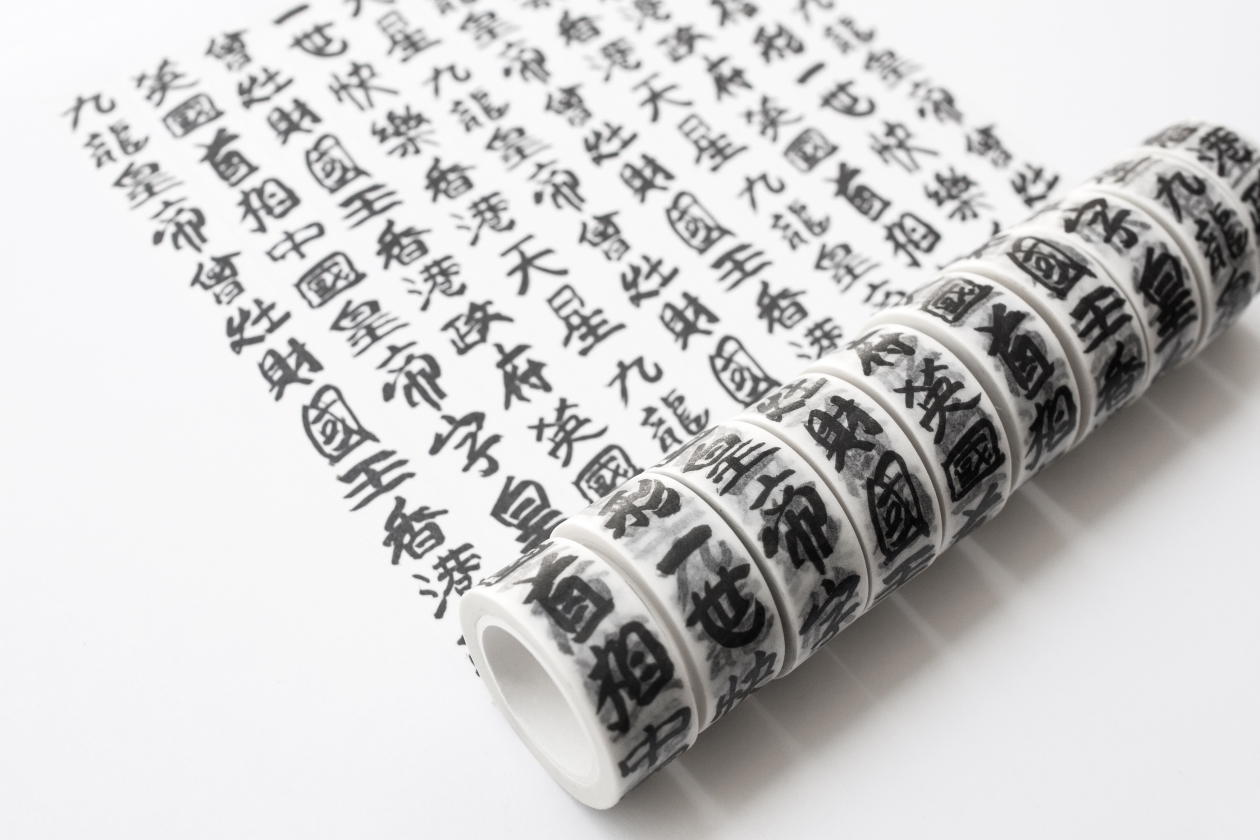 九龍皇帝曾灶財國王香港
英國首相中國皇帝字皇
曾灶財國王香港政府英國
一世快樂香港天星九龍
星九龍皇帝曾灶財國
皇帝曾灶財國王香港
香港天星九龍皇帝
港政府英國首相
利一世快樂
九龍皇帝曾灶
首相中
一世快
皇帝字
灶財國
府英國
國首相
字國王香
九皇
港龍